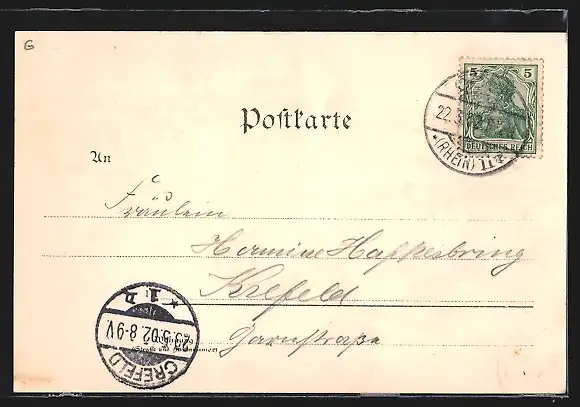 G
Postkarte
5 5
DEUTSCHES REICH
22.3.
(RHEIN)
An
Fräulein
Hermine Happesbring
Krefeld
Wohnung
(Straße und Hausnummer)
CREFELD
23.3.02. 8-9V
* 1